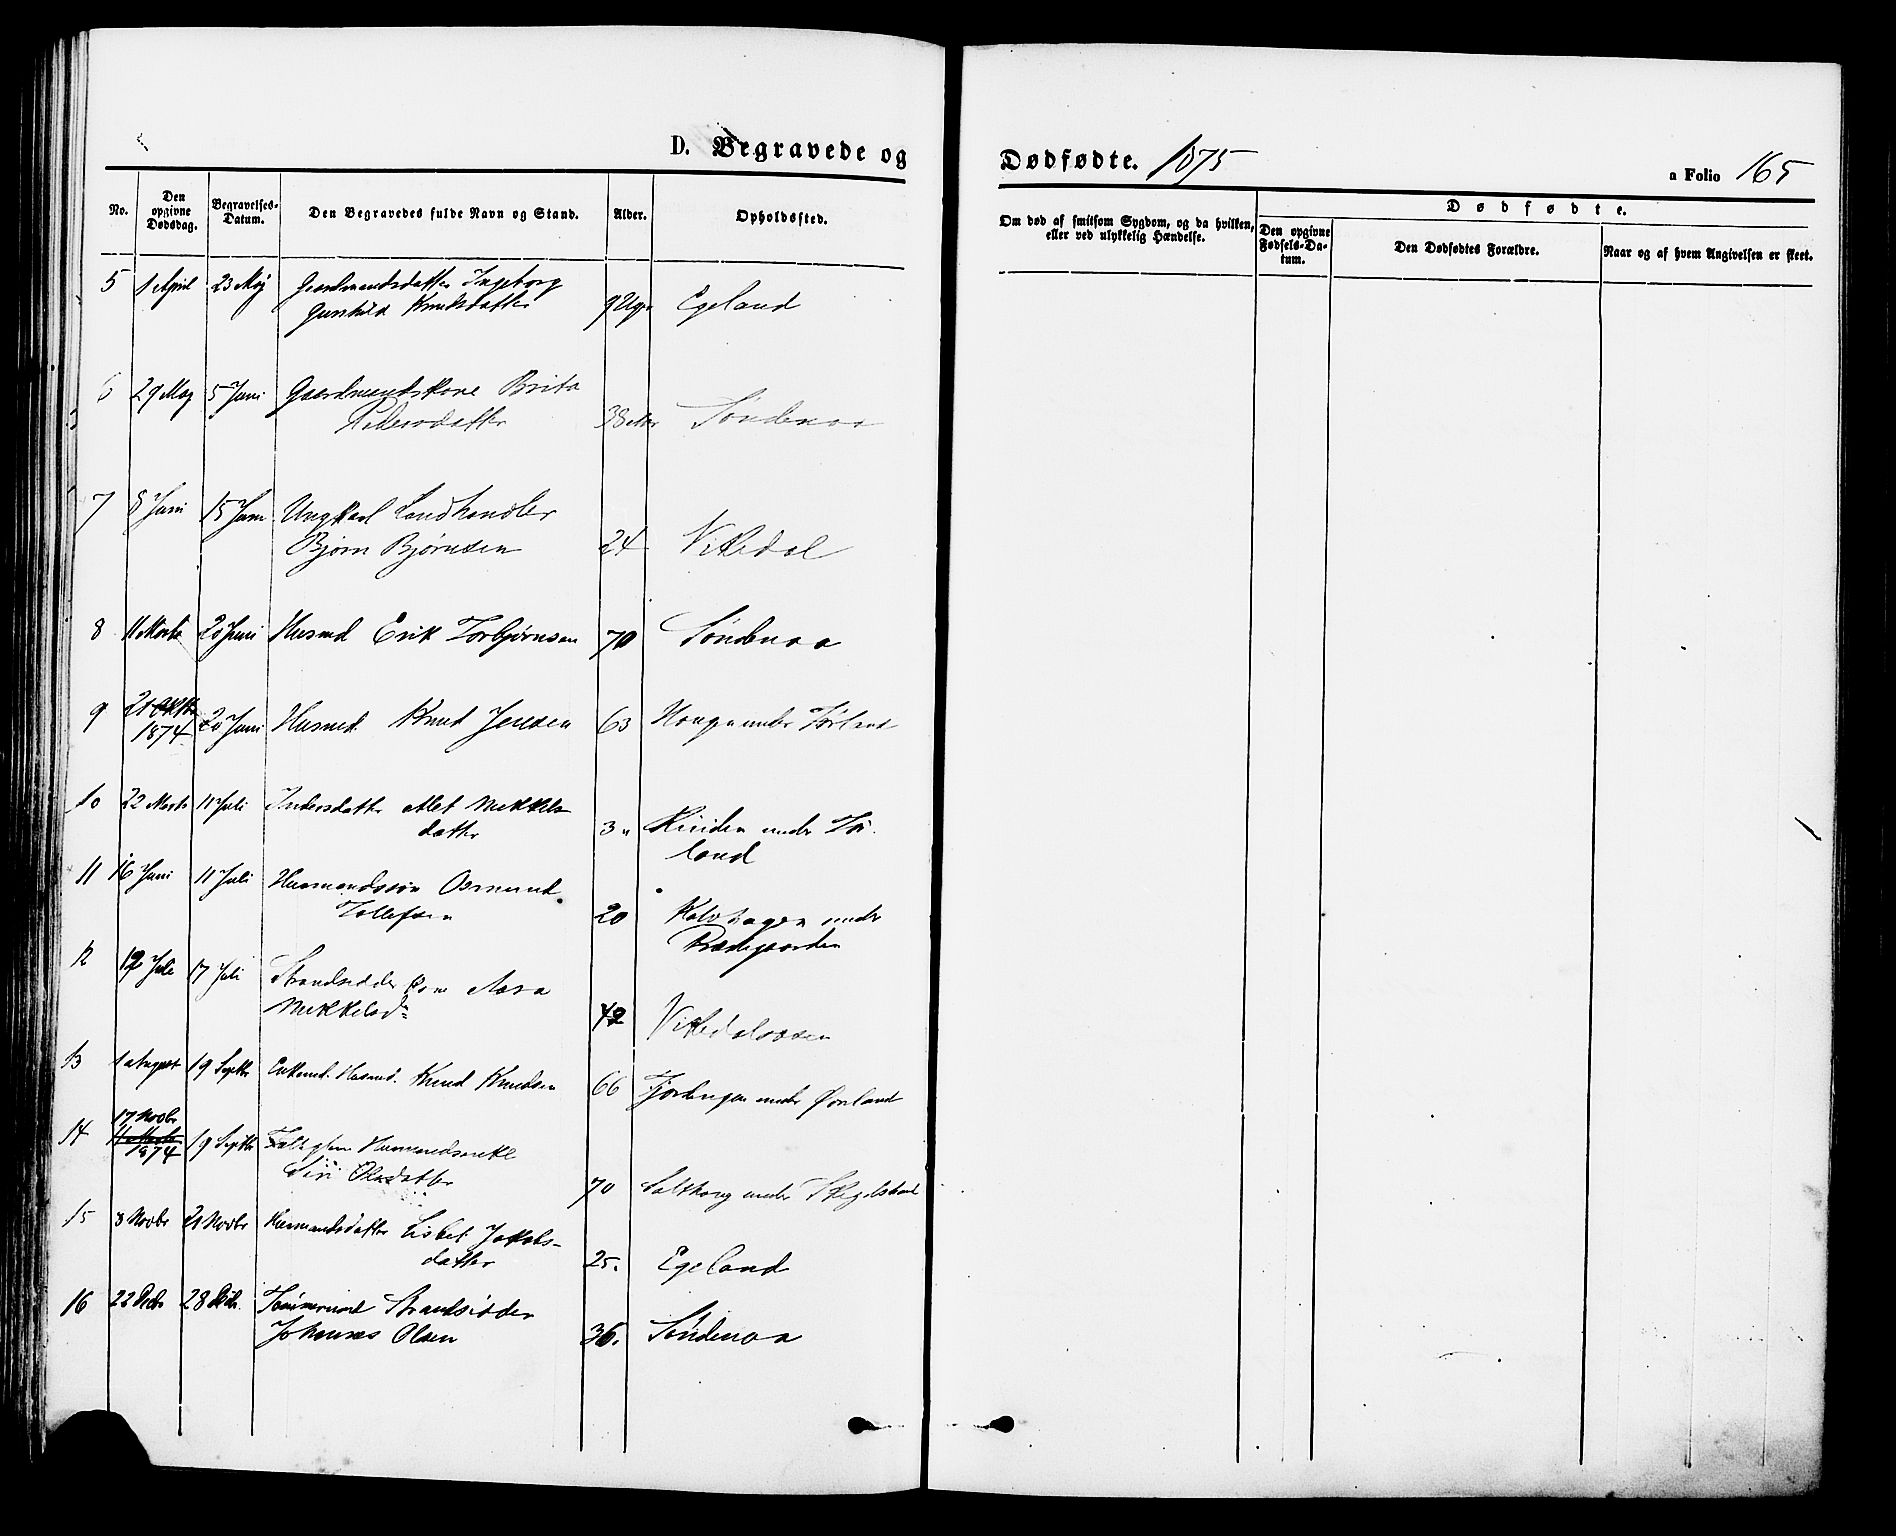 D. Begravede og Dødfødte. 1875
a Folio 165
No.
Den opgivne Dødsdag.
Begravelses-Datum.
Den Begravedes fulde Navn og Stand.
Alder.
Opholdssted.
Om død af smitsom Sygdom, og da hvilken, eller ved ulykkelig Hændelse.
Dødfødte.
Den opgivne Fødsels-Datum.
Den Dødfødtes Forældre.
Naar og af hvem Angivelsen er skeet.
5 1 April 23 Maj Gaardmandsdatter Ingeborg
Gunhild Knudsdatter 9 Uger Egeland
6 29 Maj 5 Juni Gaardmandskone Brita
Pedersdatter 38 Søndenaa
7 8 Juni 15 Juni Ungkarl Landhandler
Bjørn Bjørnsen 24 Vikedal
8 11 Marts 20 Juni Husmd Erik Torbjørnsen 70 Søndenaa
9 21 Oktbr 1874 20 Juni Husmd. Knud Jensen 63 under Tørland
10 22 Marts 11 Juli Mikkels-
datter 3 under Tør-
land
11 16 Juni 11 Juli Husmandssøn Osmund
Tollefsen 20 Kalvhagen under
Prestegaarden
12 12 Juli 17 Juli Strandsidder Kone Aasa
Mikkelsd= 42 Vikedalsosen
13 1 August 19 Septbr Enkemd. Husmd. Knud Knudsen 66 under Ørland
14 17 Novbr 1874 19 Septbr Husmandsenke
Siri Olsdatter 70 under
15 8 Novbr 21 Novbr Husmandsdatter Lisbet Jakobs-
datter 25. Egeland
16 22 Decbr 28 Decbr. Tømmermd Strandsidder
Johannes Olsen 36. Søndenaa